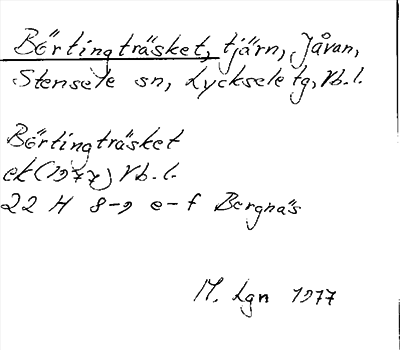 Börtingträsket, tjärn, Jåvan,
Stensele sn, Lycksele tg, Vb. l.
Börtingträsket
ek (1977) Vb. l.
22 H 8-9 e-f Bergnäs
M. Lgn 1977